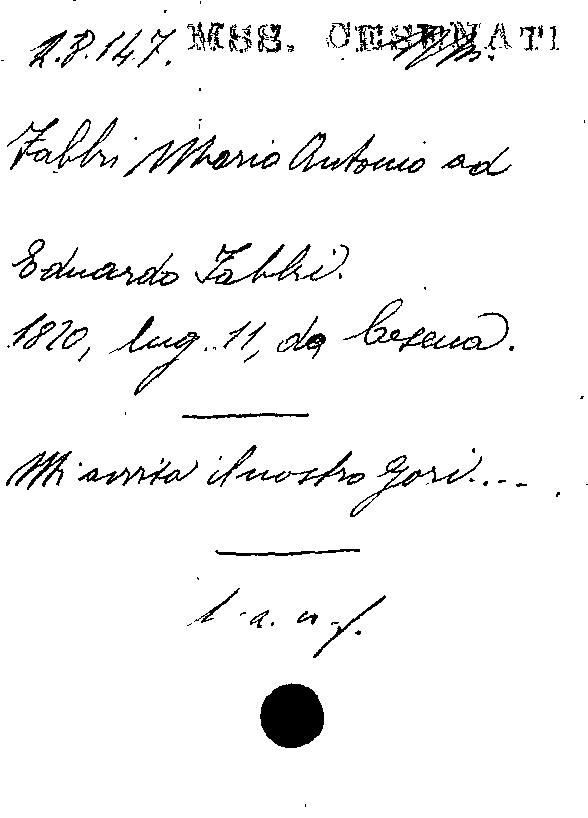 2.8.147. MSS. CESENATI
Fabbri Mario Antonio ad
Eduardo Fabbri.
1820, lug. 11, da Cesena.
Mi avvisa il nostro Gori....
l. a. u. f.